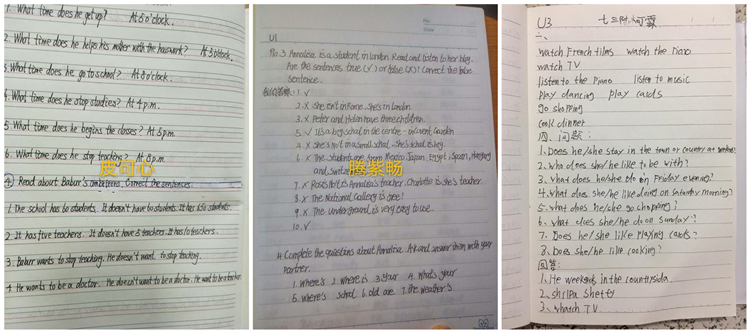 1. What time does he get up? At 5 o'clock.
2. What time does he helps his mother with the housework? At 5 o'clock.
3. What time does he go to school? At 8 o'clock.
4. What time does he stop studies? At 4 p.m.
5. What time does he begin the classes? At 5 p.m.
6. What time does he stop teaching? At 8 p.m.
皮可心
④ Read about Babur's Correct the sentences.
1. The school has 60 students. It doesn't have 60 students. It has 650 students.
2. It has five teachers. It doesn't have 5 teachers. It has 10 teachers.
3. Babur wants to stop teaching. He doesn't want to stop teaching.
4. He wants to be a doctor. He doesn't want to be a doctor. He want to be a teacher.
U1
P10. 3 Annalisa is a student in London. Read and listen to her blog.
Are the sentences true (√) or false (X)? Correct the false
sentence.
1. √
2. X She isn't in Rome. She's in London.
3. X Peter and Helen have three children.
5. √ It's a big school in the centre - in Covent Garden
4. X She's not in a small school. She's school is big.
6. X The students are from Mexico, Japan, Egypt, Spain, Hungary
and Switz
7. X Rosis Holt is Annalisa's teacher. Charlotte is she's teacher.
8. X The National Gallery is free!
9. X The Underground is very easy to use.
10. √
4. Complete the questions about Annalisa. Ask and answer them with your
partner.
1. Where's 2. Where is 3. your 4. What's your
5. Where's school 6. old are 7. the weather's
腾紫畅
U3 七三
一、
watch French films watch the Piano
watch TV
listen to the Piano listen to music
play dancing play cards
go shopping
cook dinner
四、问题:
1. Does he/she stay in the town or country at
2. who does she/he like to be with?
3. what does he/she do on Friday evening?
4. what does she/he like on Saturday morning?
5. what does he/she go shopping?
6. what does she/he do on Sunday?
7. Does he/she like playing cards?
8. Does she/he like cooking?
回答:
1. He weekends in the countrysida
2. shilpa shetty
3. whatch TV